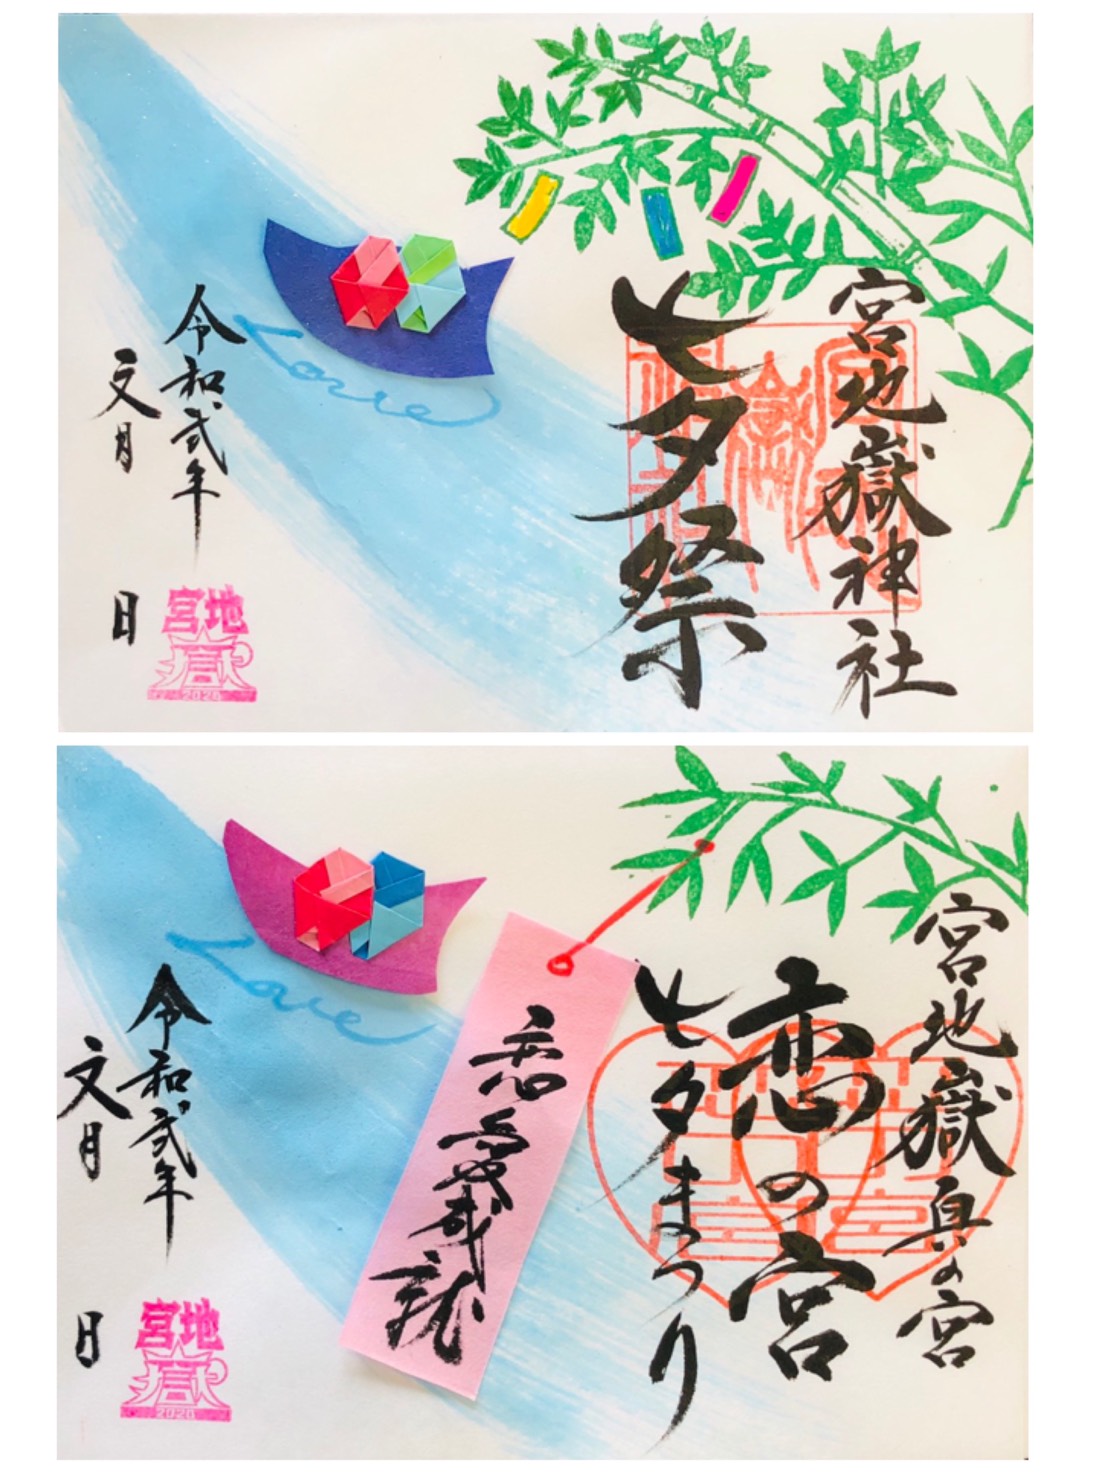 宮地嶽神社
七夕祭
Love
令和弐年
文月
日
宮地
嶽
2020
宮地嶽 真の宮
恋の宮
七夕まつり
恋愛成就
Love
令和弐年
文月
日
宮地
嶽
2020